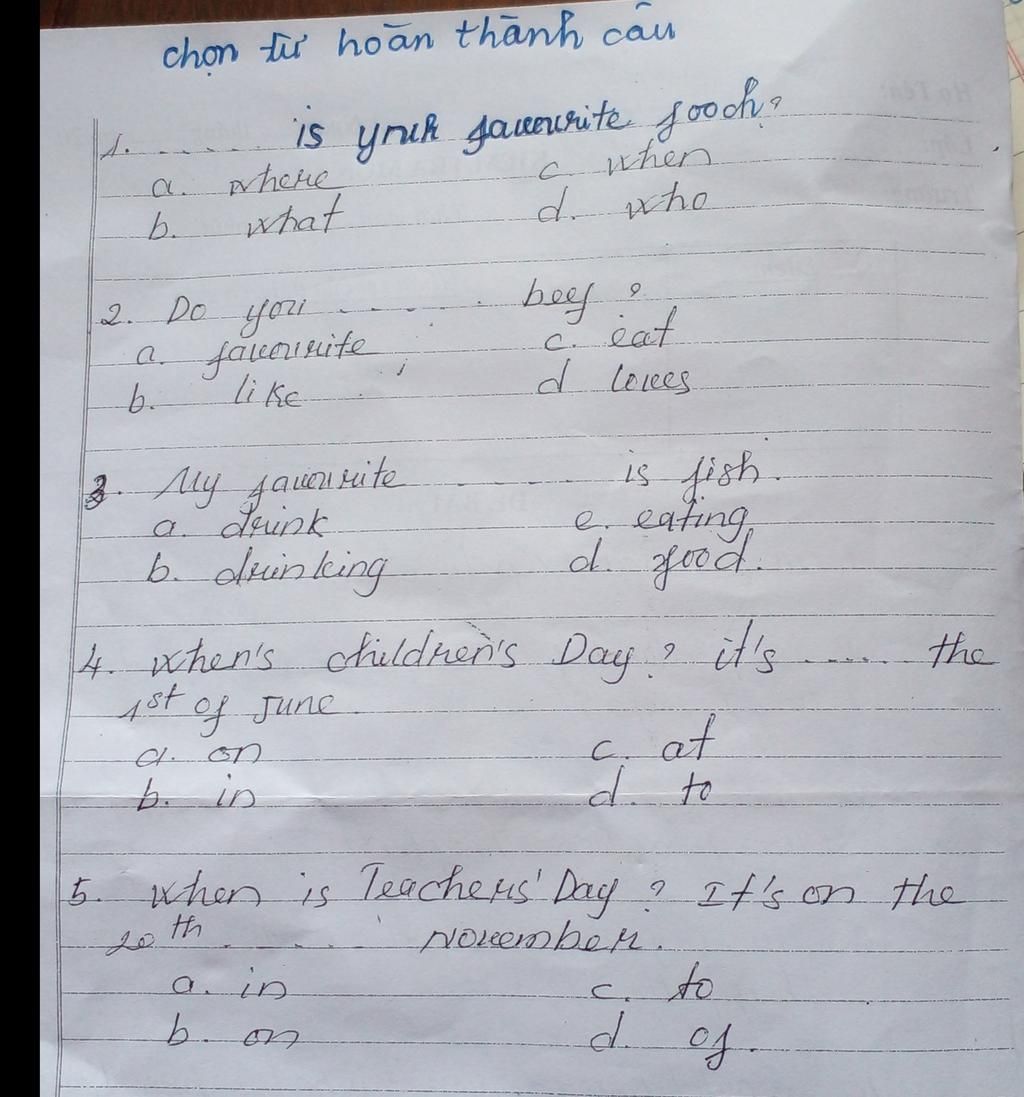 chọn từ hoàn thành câu
1. ...... is your favourite food?
a. where c. when
b. what d. who
2. Do you ...... beef ?
a. favourite c. eat
b. like d loves
3. My favourite ...... is fish.
a. drink c. eating
b. drinking d. food.
4. When's children's Day ? it's ...... the
1st of June
a. on c. at
b. in d. to
5. When is Teachers' Day ? It's on the
20th ...... November.
a. in c. to
b. on d. of.